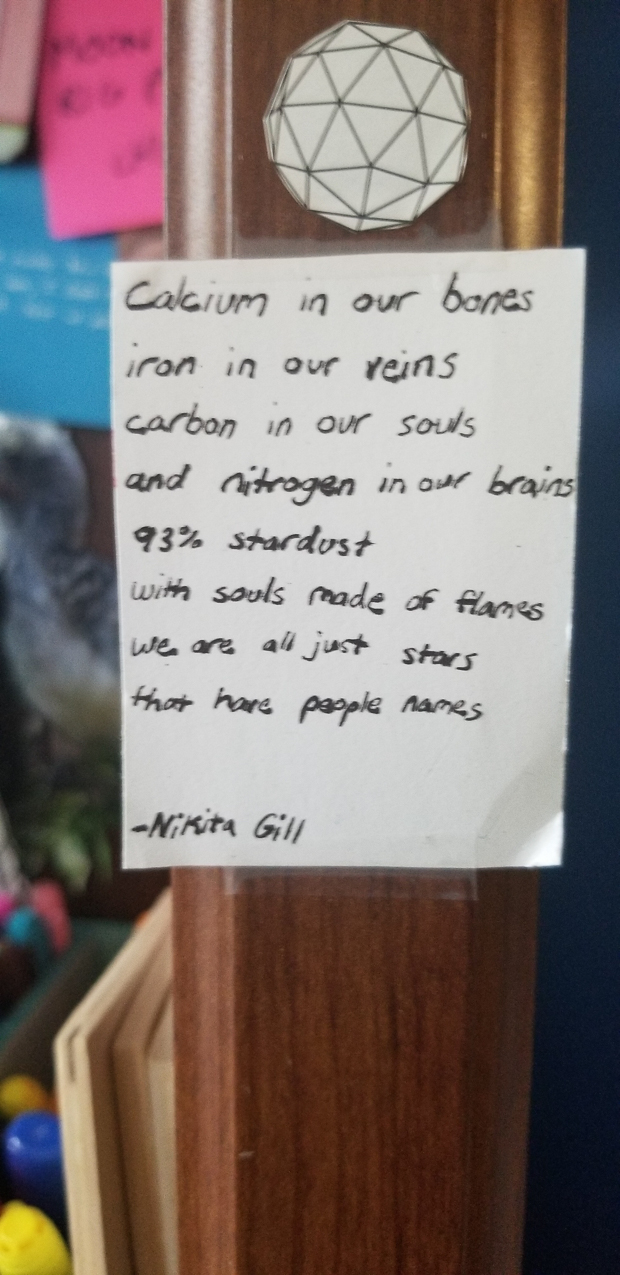 MOON
Calcium in our bones
iron in our veins
carbon in our souls
and nitrogen in our brains
93% stardust
with souls made of flames
we are all just stars
that have people names
-Nikita Gill